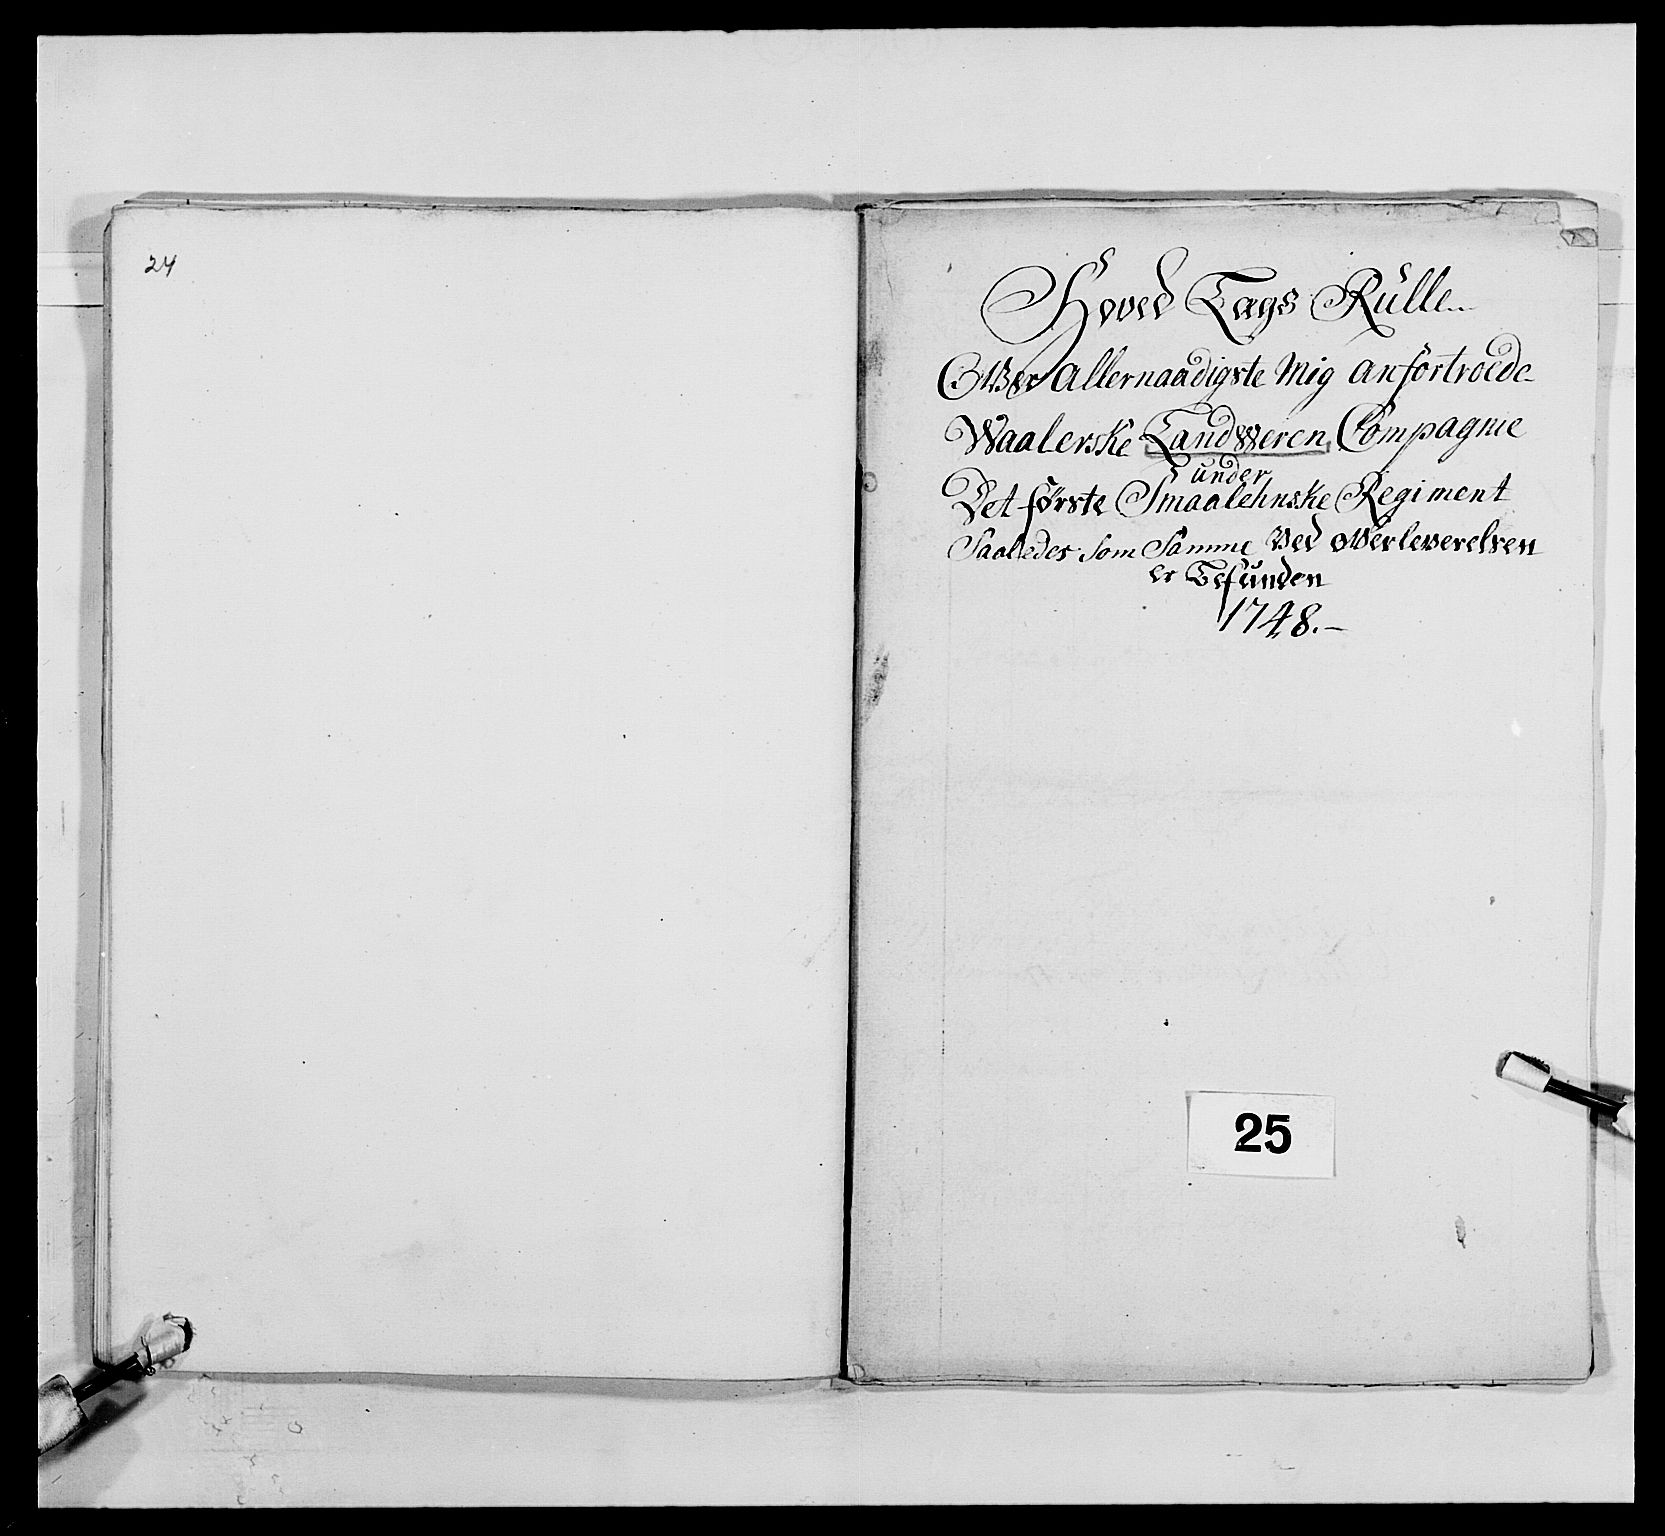 24
Hoved Lægs Rülle
Over allernaadigste Mig anfortroede
Waalerske Landweren Compagnie
under
Det første Smaalehnske Regiment
Saaledes som Samme Ved overleverelsen
er Befunden
1748.
25